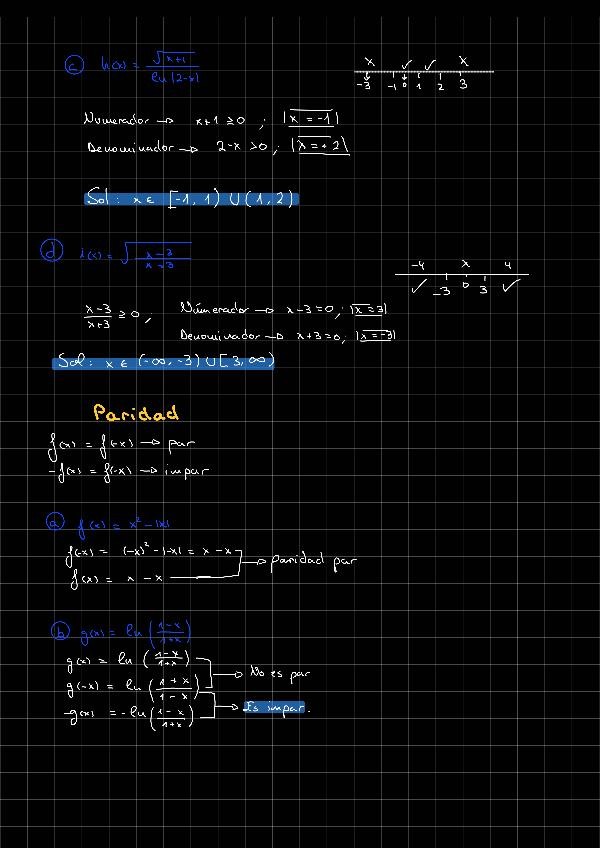 c h(x) = √(x+1) / ln(2-x)
x ✓ ✓ x
-3 -1 0 1 2 3
Numerador → x+1 ≥ 0 ; |x = -1|
Denominador → 2-x > 0 ; |x = +2|
Sol: x ∈ [-1, 1) ∪ (1, 2)
d i(x) = √((x-3)/(x+3))
-4 x 4
✓ -3 0 3 ✓
(x-3)/(x+3) ≥ 0, Númerador → x-3=0, |x=3|
Denominador → x+3=0, |x=-3|
Sol: x ∈ (-∞, -3) ∪ [3, ∞)
Paridad
f(x) = f(-x) → par
-f(x) = f(-x) → impar
a f(x) = x² - |x|
f(-x) = (-x)² - |-x| = x - x
→ paridad par
f(x) = x - x
b g(x) = ln((1-x)/(1+x))
g(x) = ln((1-x)/(1+x))
→ No es par
g(-x) = ln((1+x)/(1-x))
→ Es impar.
-g(x) = -ln((1-x)/(1+x))